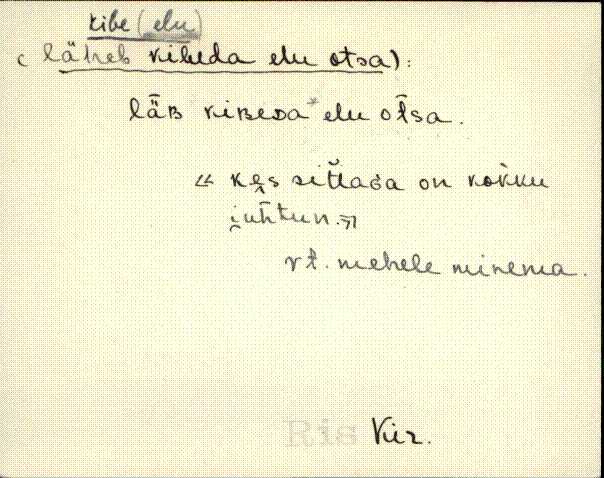 kibe (elu)
(läheb kibeda elu otsa):
läB kiBeDa* elu oťsa.
« kes sittaGa on kokku
juhtun.»
vt. mehele minema.
Ris Kir.